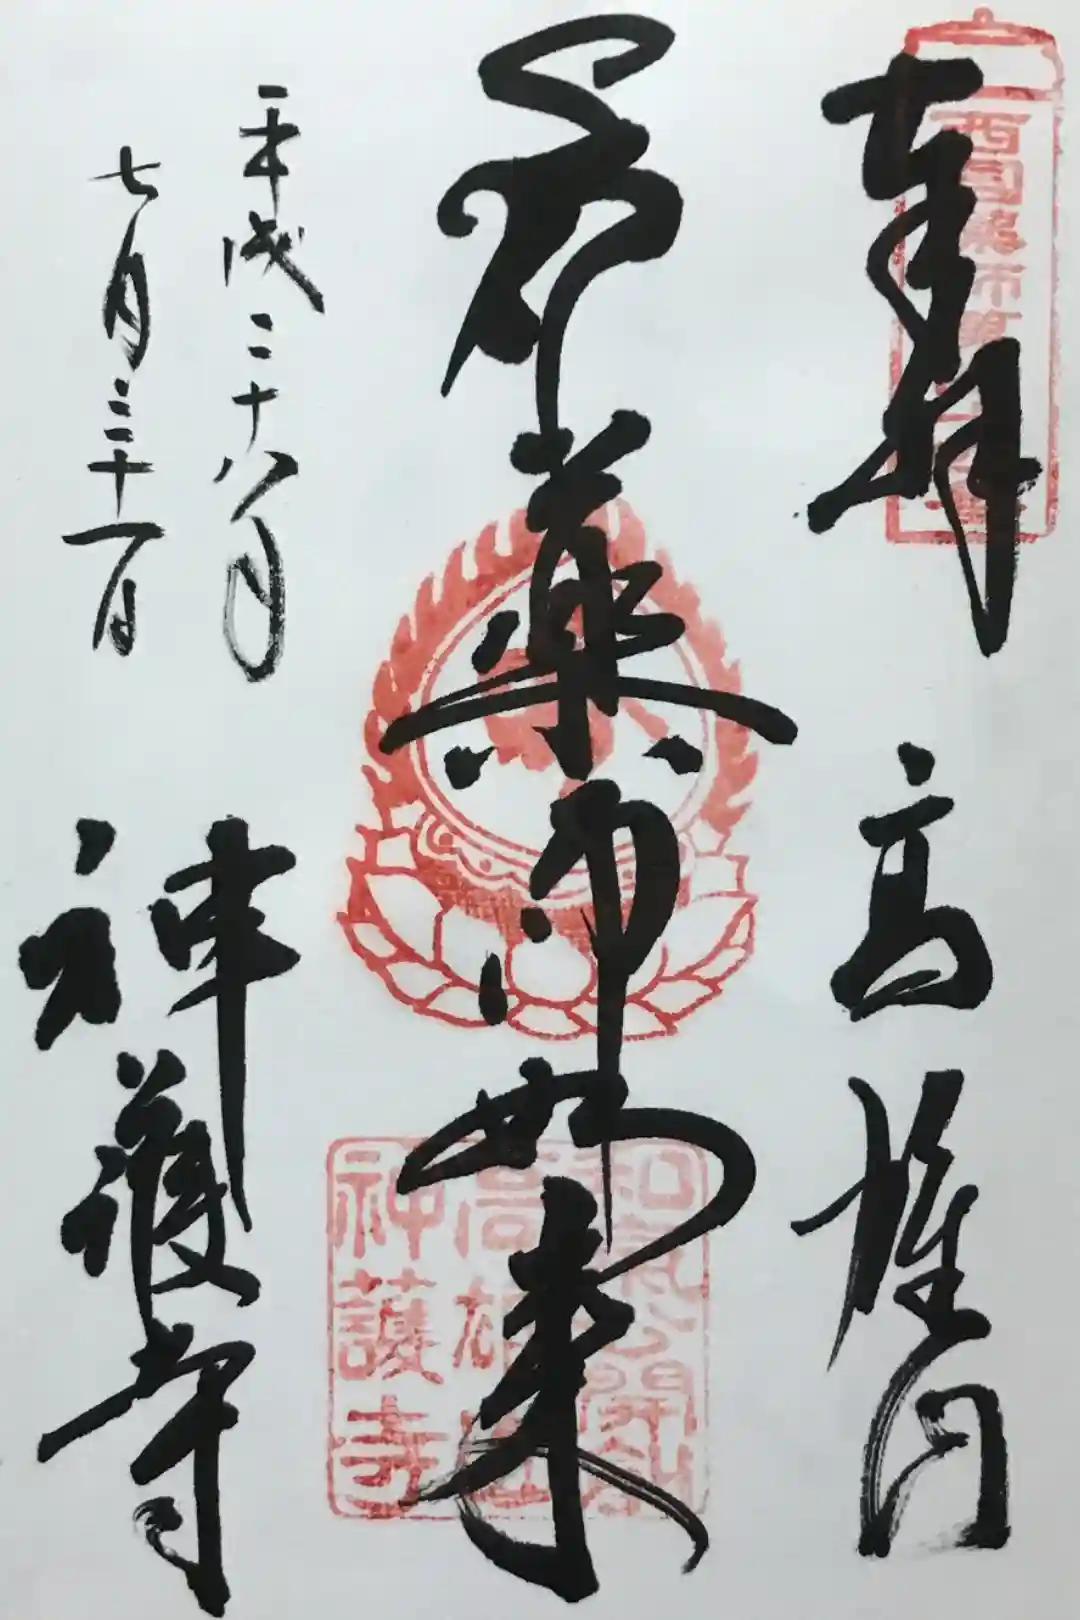 奉拝 高雄山
西国薬師
薬師如来
和気公開創
高雄山
神護寺
平成二十八年
七月三十一日
神護寺